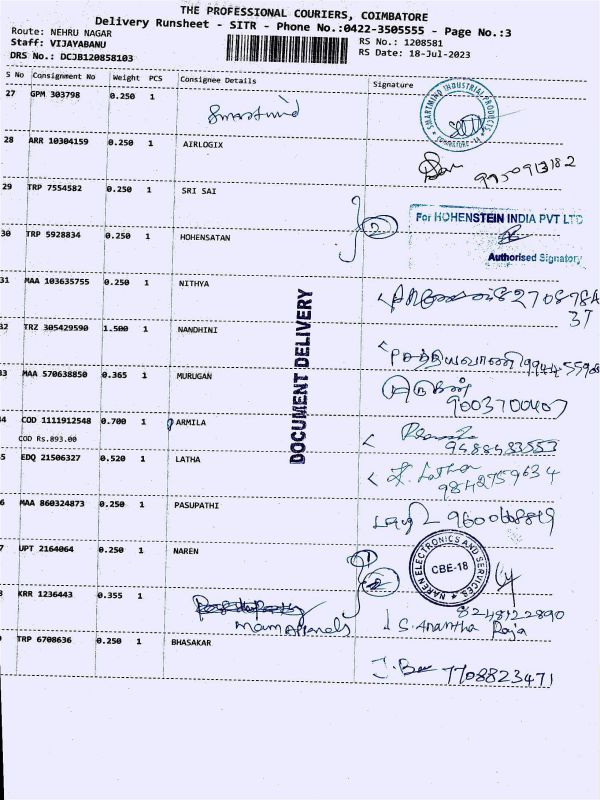 THE PROFESSIONAL COURIERS, COIMBATORE
Delivery Runsheet - SITR - Phone No.:0422-3505555 - Page No.:3
Route: NEHRU NAGAR
Staff: VIJAYABANU
DRS No.: DCJB120858103
RS No.: 1208581
RS Date: 18-Jul-2023
S No Consignment No Weight PCS Consignee Details Signature
27 GPM 303798 0.250 1 Smartmind
SMARTMIND INDUSTRIAL PRODUCTS
28 ARR 10304159 0.250 1 AIRLOGIX
9950913182
29 TRP 7554582 0.250 1 SRI SAI
2
For HOHENSTEIN INDIA PVT LTD
30 TRP 5928834 0.250 1 HOHENSATAN
Authorised Signatory
31 MAA 103635755 0.250 1 NITHYA
DOCUMENT DELIVERY
32 TRZ 305429590 1.500 1 NANDHINI
சத்தியவாணி
33 MAA 570638850 0.365 1 MURUGAN
9003700407
4 COD 1111912548 0.700 1 ARMILA
COD Rs.893.00
9488433553
5 EDQ 21506327 0.520 1 LATHA
Latha
9842759634
6 MAA 860324873 0.250 1 PASUPATHI
7 UPT 2164064 0.250 1 NAREN
NAREN ELECTRONICS AND SERVICES
CBE-18
KRR 1236443 0.355 1
8248122890
S. Anantha Raja
TRP 6708636 0.250 1 BHASAKAR
7708823471